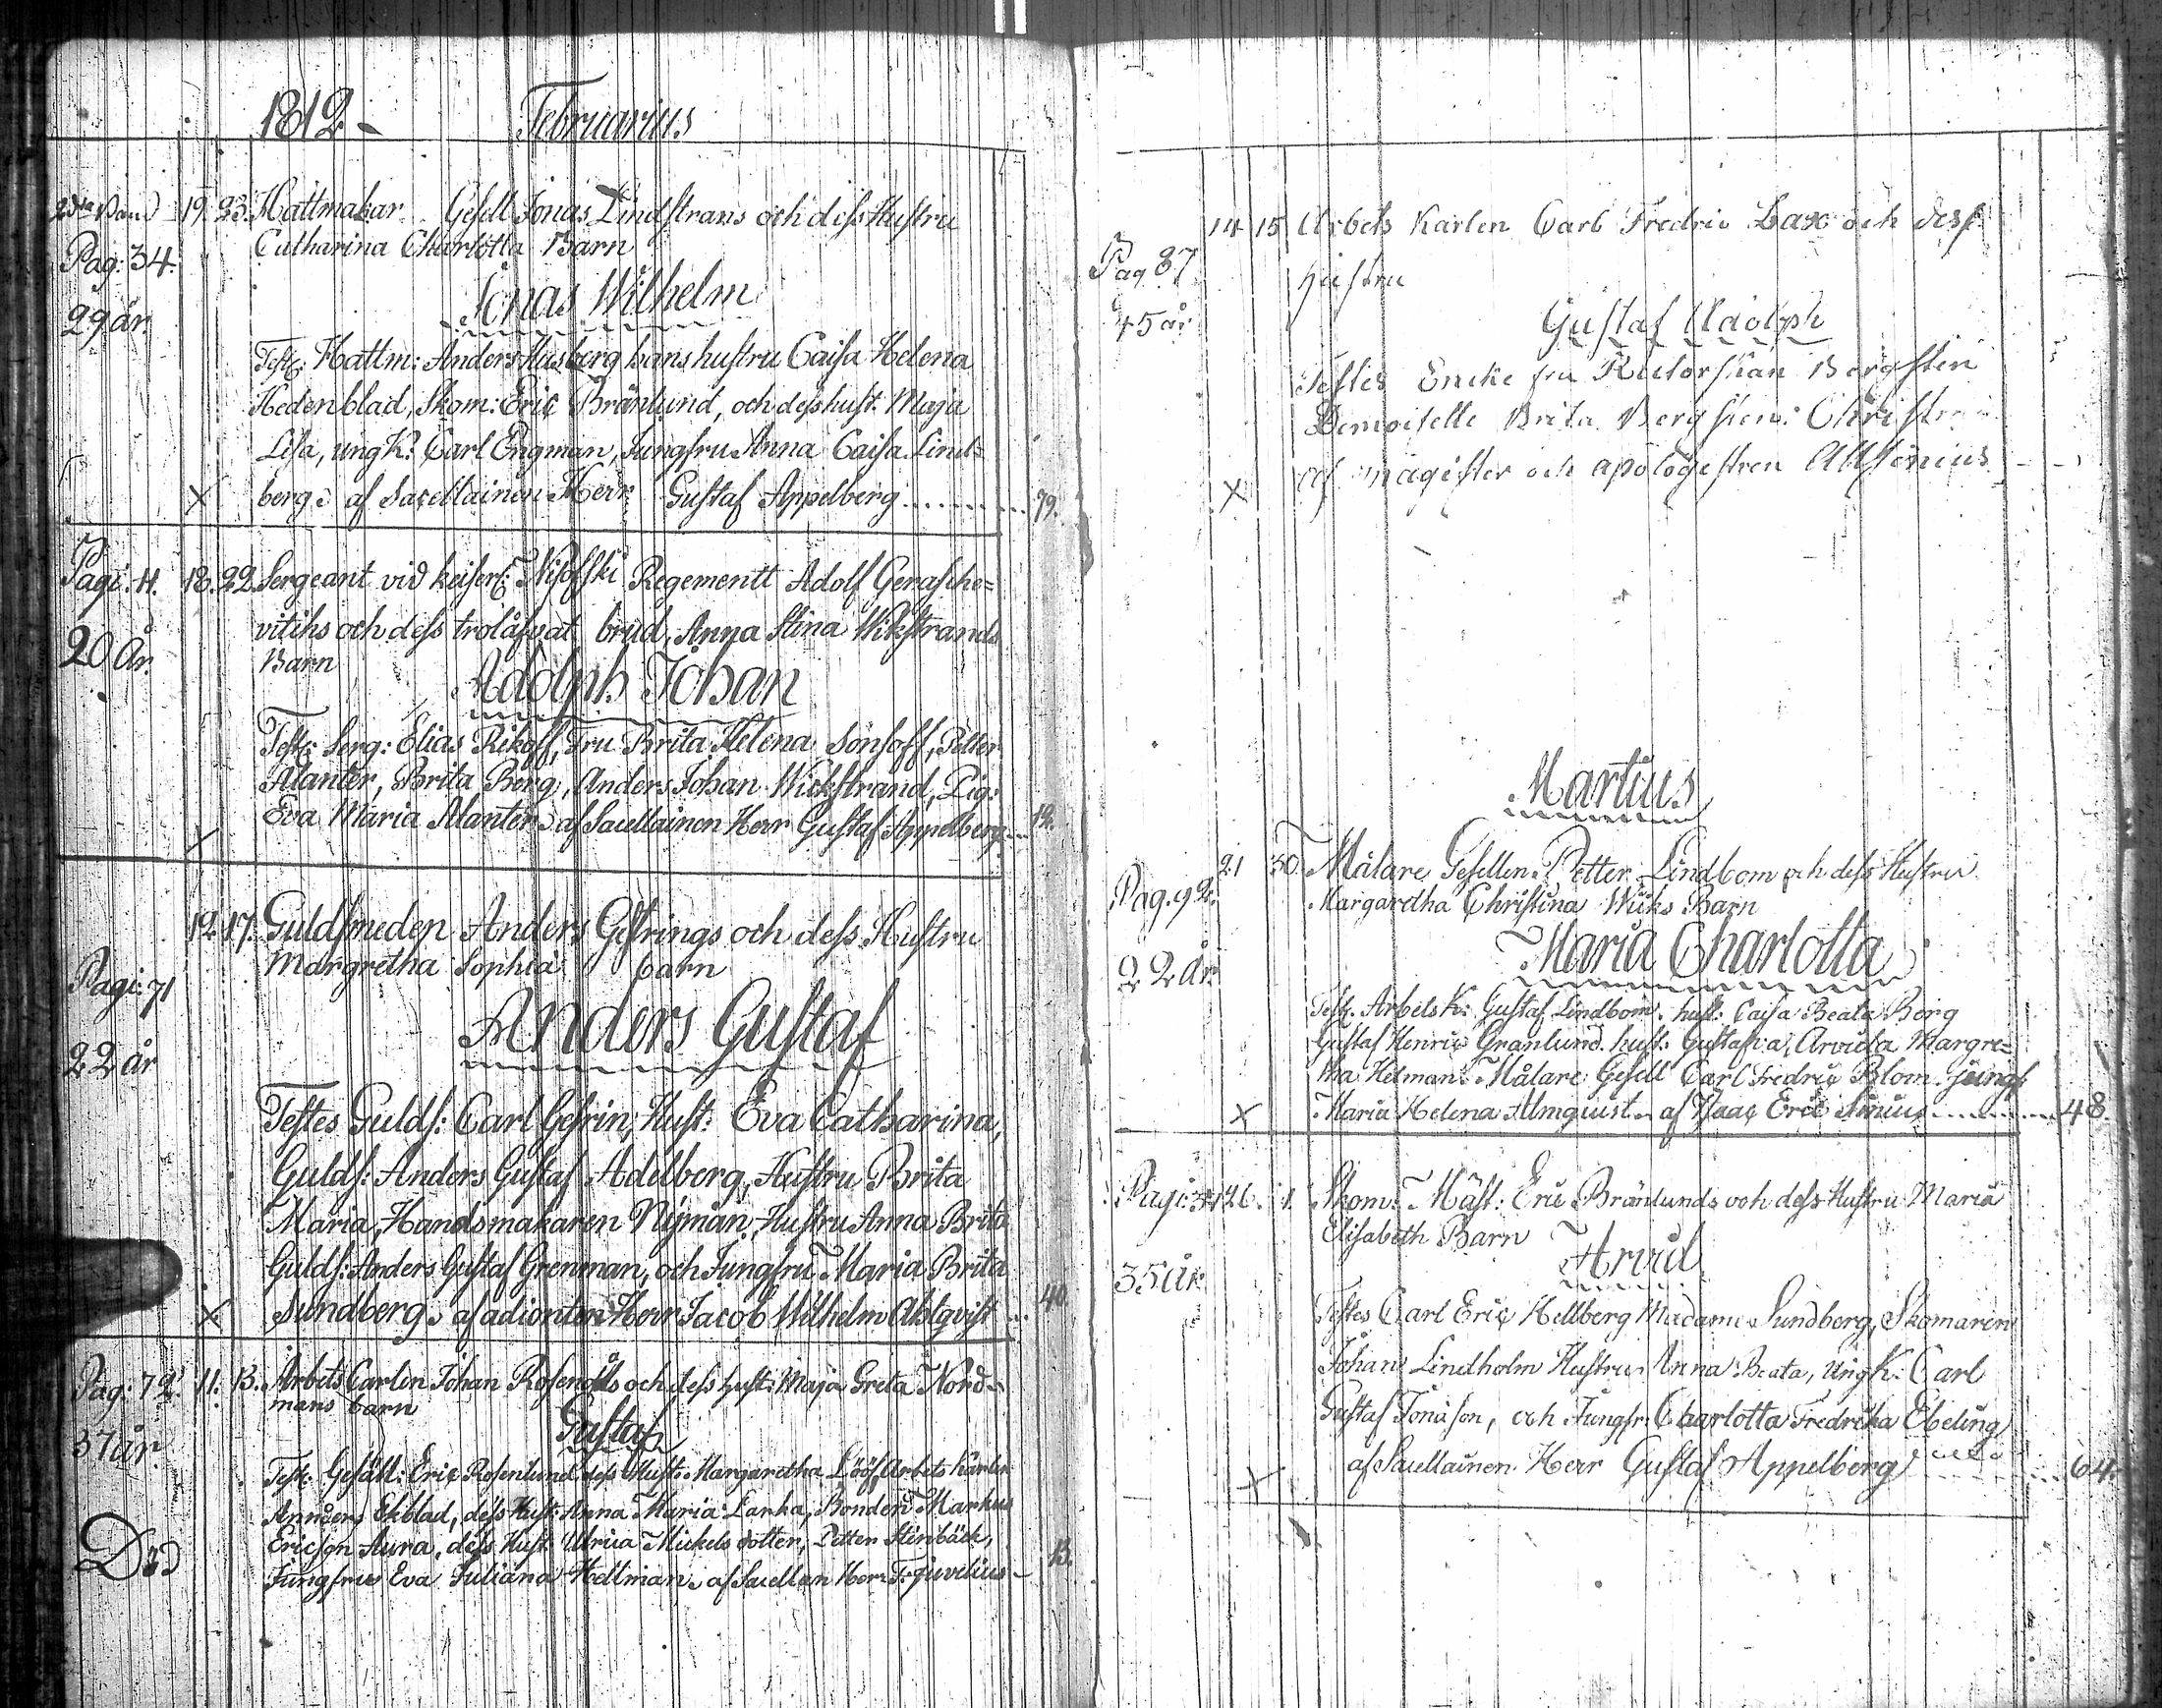 1812 - Februarius
19. 23. Hattmakar Gesell Jonas Lindstrans och dess Hustru
Pag: 34. Catharina Charlotta Barn
29 år. Jonas Wilhelm
Test: Hattm: Anders Husberg hans hustru Caisa Helena
Hedenblad, Skom: Eric Brånlund, och dess hust. Maja
Lisa, ungK: Carl Engman, Jungfru Anna Caisa Lind=
X berg. af Sacellainen Herr Gustaf Appelberg ........ 79.
Pagi: 11. 18. 22. Sergeant vid keiserl: Regementt Adolf Gerasche=
vitihs och dess trolåfvat brud, Anna Stina Wikstrands
20 År. Barn
Adolph Johan
Test: Serg: Elias Rikoff, Fru Brita Helena Sonsoff, Petter
Alanter, Brita Berg, Anders Johan Wickstrand, Pig:
X Eva Maria Alanter. af Sacellainen Herr Gustaf Appelberg ... 12.
12. 17. Guldsmeden Anders Gestrings och dess Hustru
Pagi: 71 Margretha Sophia barn
22 år Anders Gustaf
Testes Gulds: Carl Gestrin, Hust: Eva Catharina,
Gulds: Anders Gustaf Adelberg, Hustru Brita
Maria, Handsmakaren Nyman, Hustru Anna Brita
Gulds: Anders Gustaf Grenman, och Jungfru Maria Brita
X Sundberg. af adionten Herr Jacob Wilhelm Ahlqvist ... 40.
Pag: 72. 11. 13. Arbets Carlen Johan och dess hust: Maja Greta Nord=
mans barn
37 år. Gustaf
Test: Gesäll: Eric Rosenlund, dess Hust: Margaretha Lööf, Arbets karlen
Anders Ekblad, dess Hust: Anna Maria Lanka, Bonden Markus
Ericson Aura, dess Hust: Ulrica Mickels dotter, Petter Stenbäck,
Död Jungfrus Eva Juliana Hellman. af Sacellan Herr F: Juvelius - 13.
14 15 Arbets Karlen Carl Fredric Lax och dess
Pag 87 hustru
45 år Gustaf Adolph
Testes Encke fru Rectorskan Bergsten
Demoiselle Brita Bergsten:
X af magister och apologestren Alstenius
Martius
21 30. Målare Gesellen Petter Lindbom och dess Hustru
Pag. 92. Margaretha Christina Wicks Barn
22 år. Maria Charlotta
Test. Arbets K: Gustaf Lindbom. hust: Caisa Beata Berg
Gustaf Henric Granlund. hust: Gustafva, Arvida Margre=
tha Helman. Målare Gesell Carl Fredric Blom. Jungf:
X Maria Helena Almquist. af Isaac Eric Sinius ........ 48.
Pagi: 26. 1. Skom: Mäst: Eric Brånlunds och dess Hustru Maria
Elisabeth Barn
35 år Arvid
Testes Carl Eric Hellberg Madame Sundberg, Skomaren
Johan Lindholm Hustru Anna Beata, UngK: Carl
Gustaf Jonason, och Jungfr: Charlotta Fredrika Ebeling
X af Sacellainen Herr Gustaf Appelberg ........ 64.